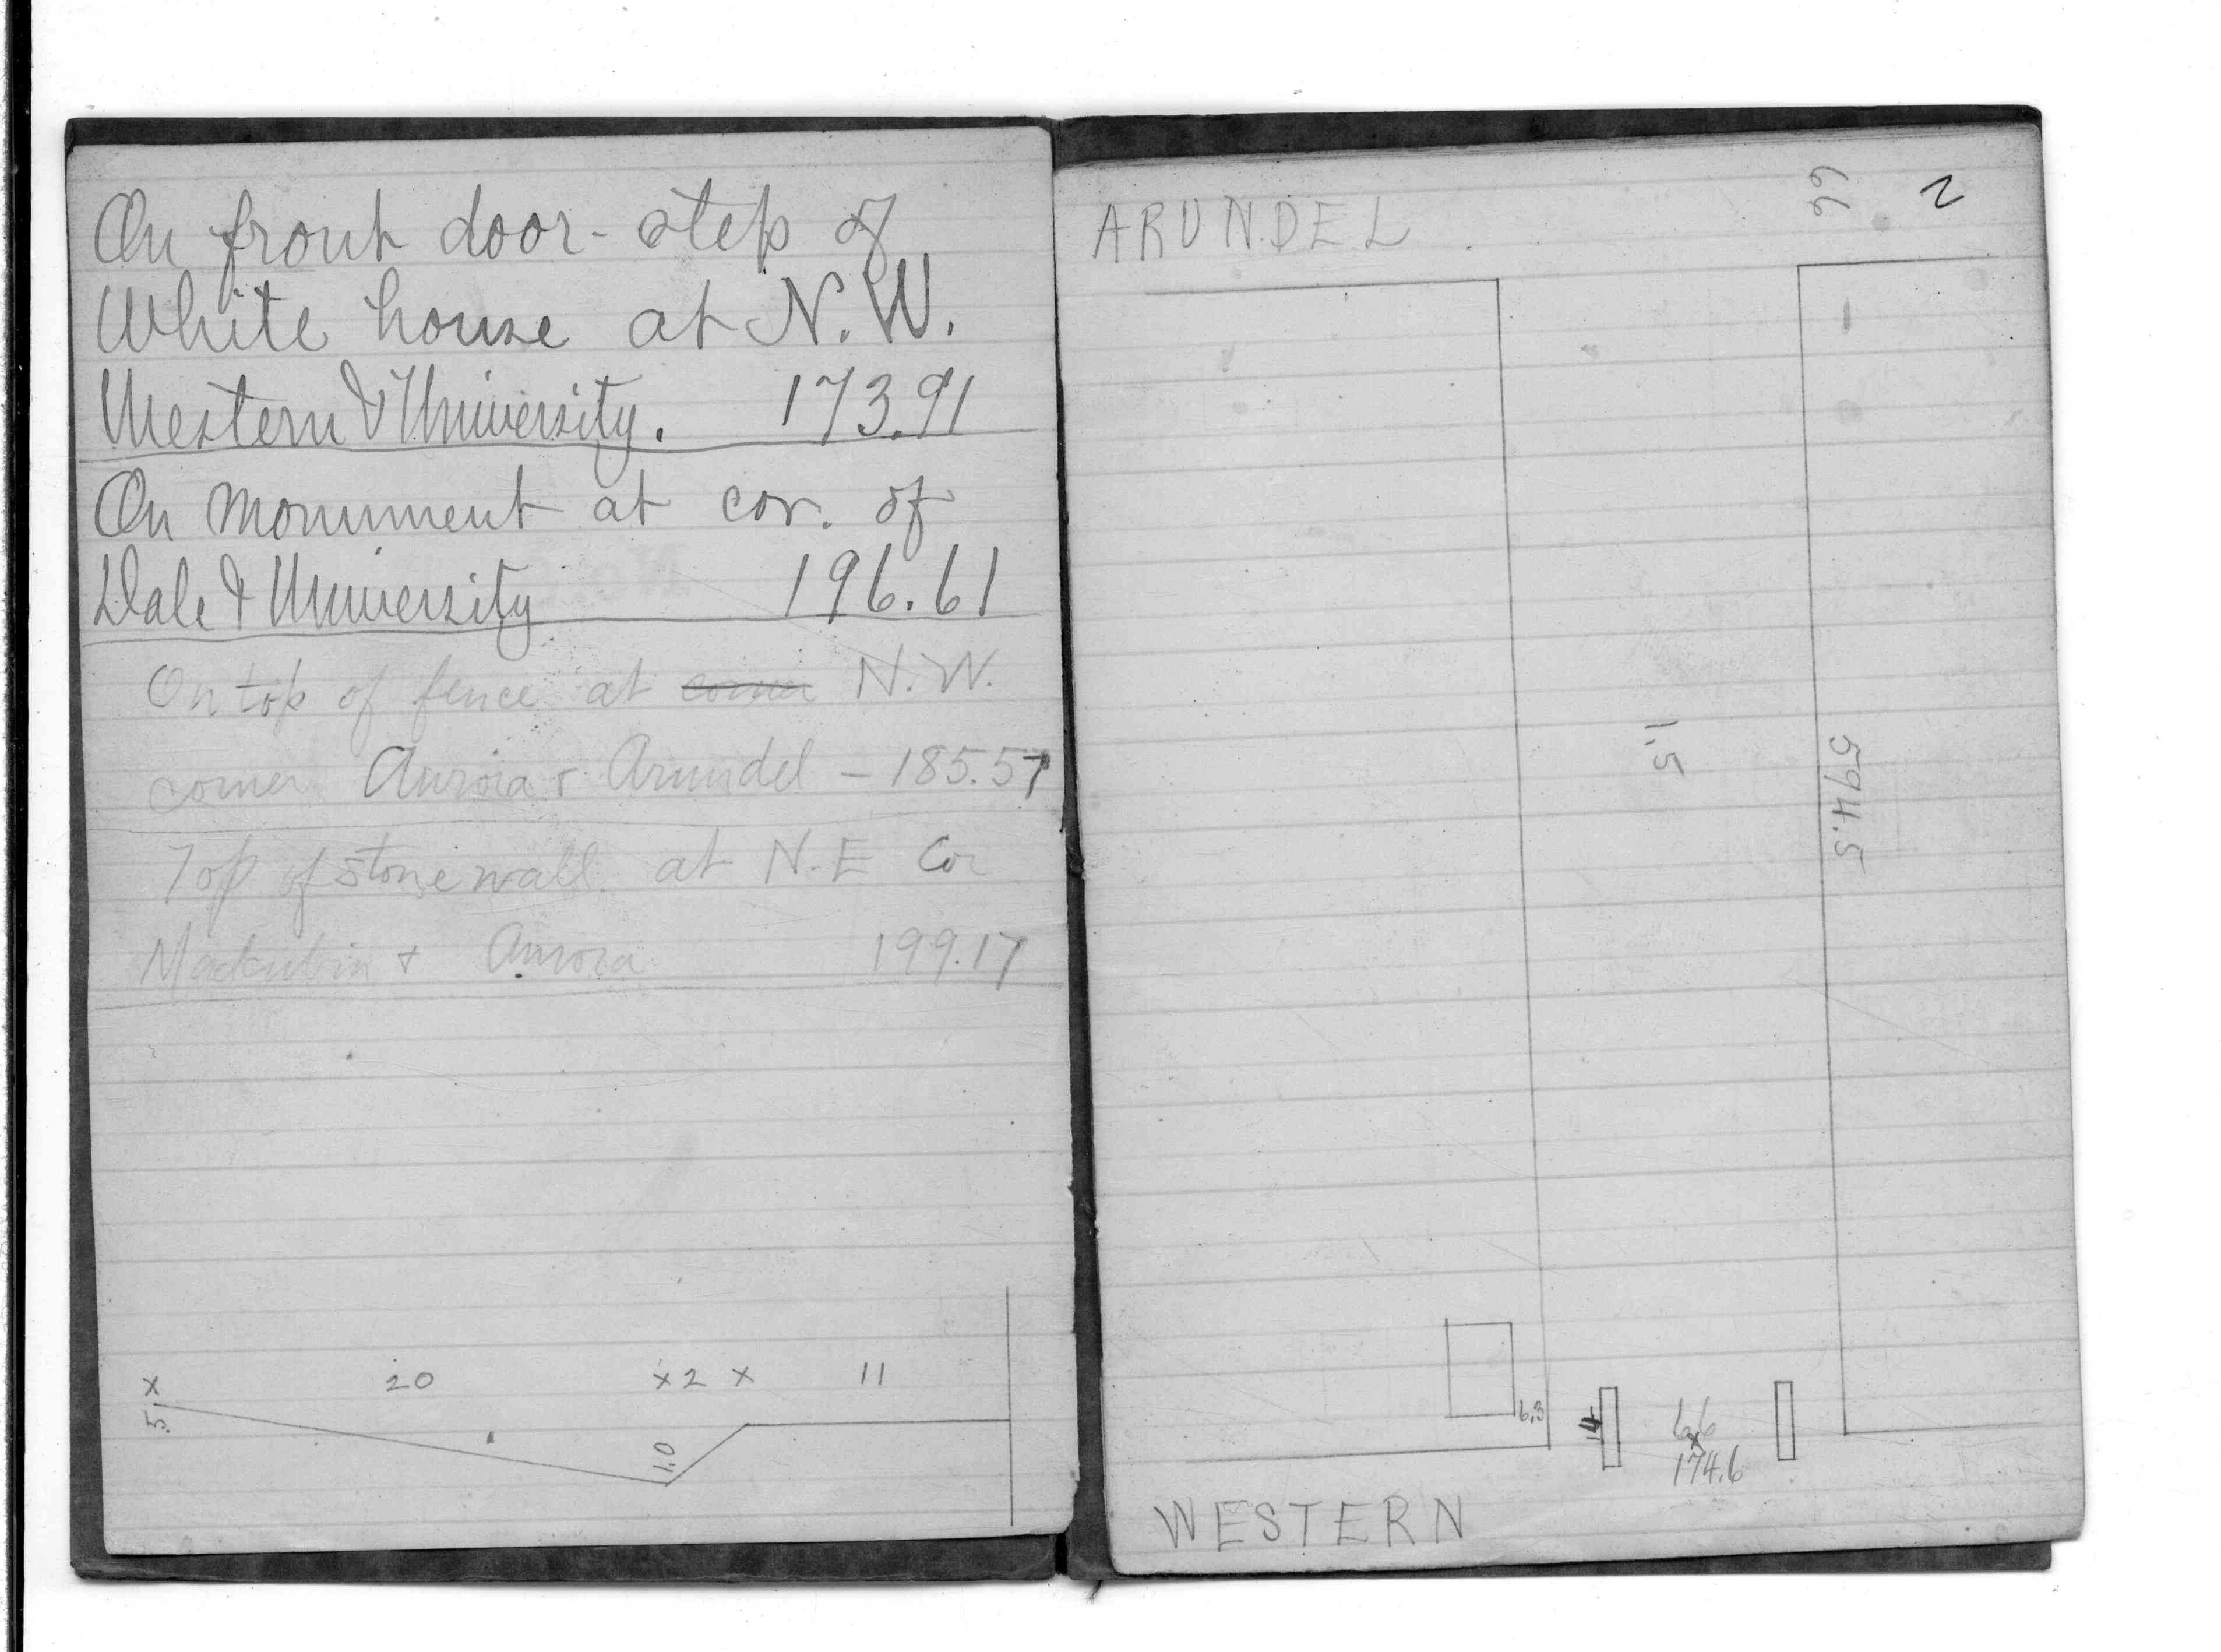 On front door-step of
White house at N.W.
Western & University. 173.91
On monument at cor. of
Dale & University 196.61
On top of fence at corner N.W.
corner Aurora & Arundel – 185.57
Top of stone wall at N.E Cor
Mackubin & Aurora 199.17
x 20 x 2 x 11
.5
1.0
66 2
ARUNDEL
1.5
594.5
6.3
14
66
x
174.6
WESTERN